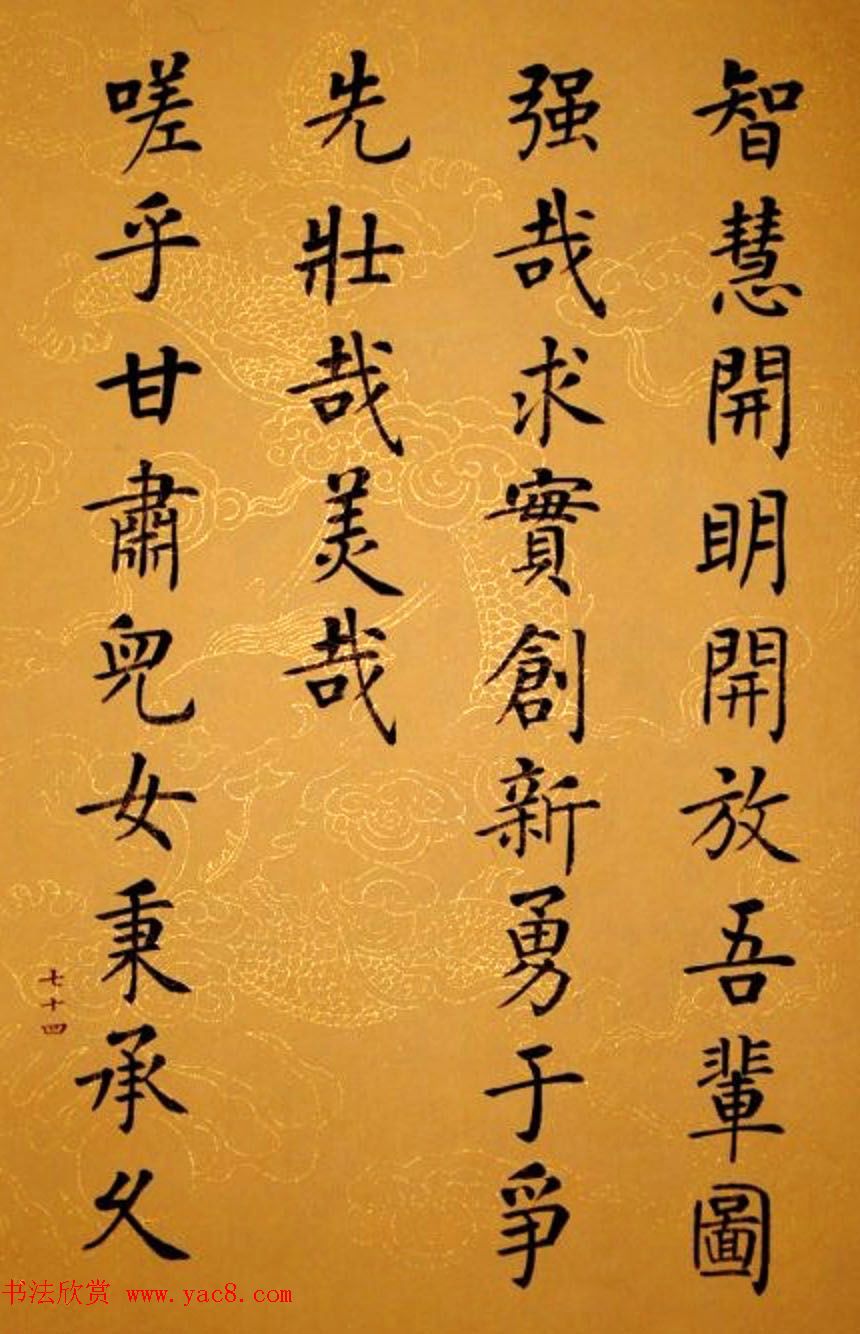 智慧開明開放吾輩圖
强哉求實創新勇于爭
先壯哉美哉
嗟乎甘肅兒女秉承久
七十四
书法欣赏 www.yac8.com